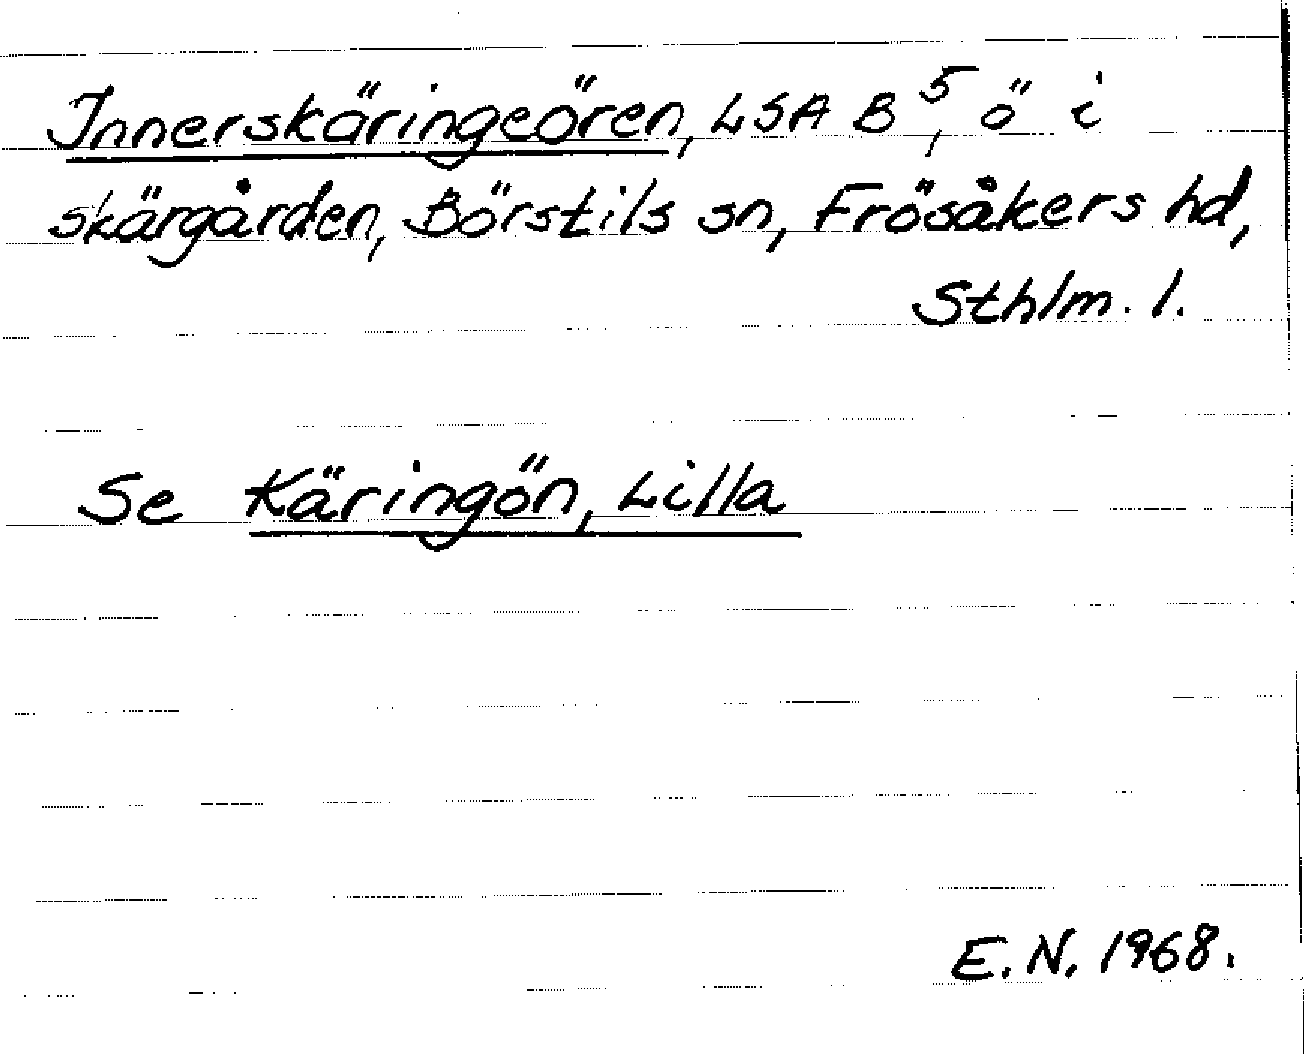 Innerskäringeören, LSA B⁵, ö i
skärgården, Börstils sn, Frösåkers hd,
Sthlm. l.
Se Käringön, Lilla
E. N. 1968.